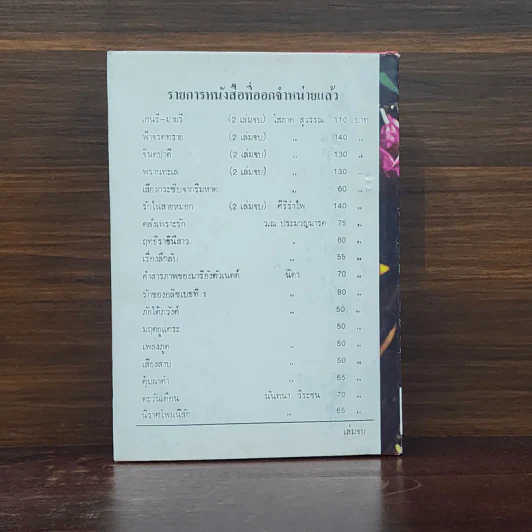 รายการหนังสือที่ออกจำหน่ายแล้ว
เกนรี-มายรี (2 เล่มจบ) โสภาค สุวรรณ 110 บาท
ฟ้าจรดทราย (2 เล่มจบ) " 140 "
จินตปาตี (2 เล่มจบ) " 130 "
พรานทะเล (2 เล่มจบ) " 130 "
เสียงกระซิบจากริมหาด " 60 "
รักในสายหมอก (2 เล่มจบ) ศิริรำไพ 140 "
คลั่งเพราะรัก ว.ณ ประมวญมารค 75 "
ฤทธีราชินีสาว " 80 "
เรื่องลึกลับ " 55 "
คำสารภาพของมารีอังตัวเนตต์ นิดา 70 "
รักของอลิซเบธที่ ๑ " 80 "
ภัยใต้ภวังค์ " 50 "
มฤตยูแคระ " 50 "
เพลงภูต " 50 "
เสียงสาป " 50 "
คุ้มผาคำ " 65 "
ตะวันเดือน นันทนา วีระชน 70 "
นิราศโพนพิสัย " 65 "
เล่มจบ